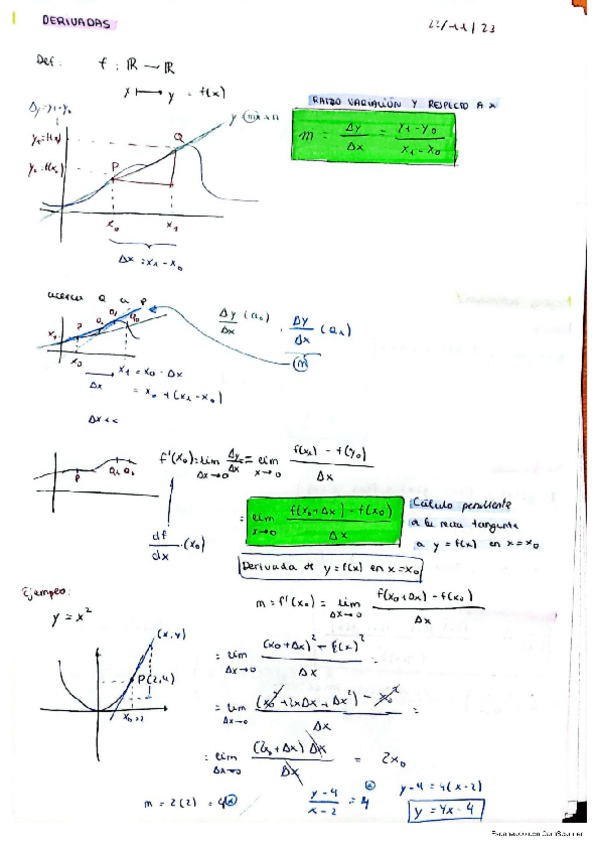 DERIVADAS
22/11/23
Def: f: ℝ → ℝ
x ↦ y = f(x)
RATIO VARIACIÓN Y RESPECTO A X
m = Δy/Δx = (y₁ - y₀)/(x₁ - x₀)
Δy = y₁ - y₀
y₁ = f(x₁)
y₀ = f(x₀)
y = mx + n
P
Q
x₀
x₁
Δx = x₁ - x₀
acerca Q a P
Δy/Δx (Q₀) · Δy/Δx (Q₁)
m
P
x₀
x₁ = x₀ · Δx
Δx
= x₀ + (x₁ - x₀)
Δx <<
P Q₁ Q₀
f'(x₀) = lim Δx→0 Δy/Δx = lim x→0 (f(x₁) - f(y₀))/Δx
= lim x→0 (f(x₀+Δx) - f(x₀))/Δx
Cálculo pendiente
a la recta tangente
a y = f(x) en x = x₀
df/dx · (x₀)
Derivada de y = f(x) en x = x₀
Ejemplo:
y = x²
m = f'(x₀) = lim Δx→0 (f(x₀+Δx) - f(x₀))/Δx
(x, y)
P(2,4)
x₀ = 2
= lim Δx→0 ((x₀+Δx)² - f(x)²)/Δx =
= lim Δx→0 ((x₀² + 2xΔx + Δx²) - x₀²)/Δx =
= lim Δx→0 (2x₀ + Δx) Δx/Δx = 2x₀
m = 2(2) = 4
(y-4)/(x-2) = 4
y - 4 = 4(x-2)
y = 4x - 4
Escaneado con CamScanner